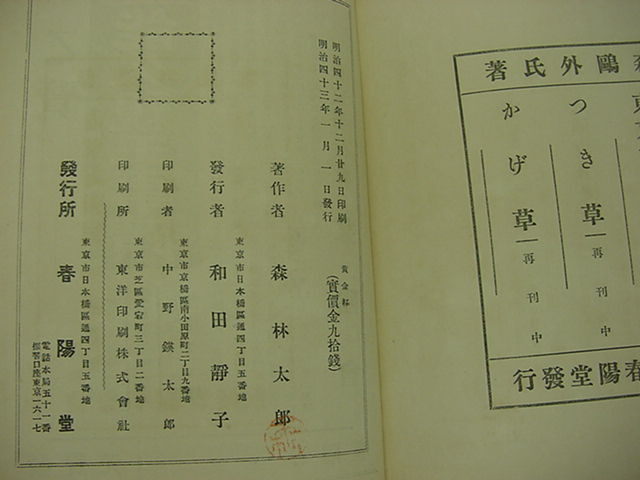 森鷗外氏著
つき草 再刊中
かげ草 再刊中
春陽堂發行
明治四十二年十二月廿九日印刷
明治四十三年一月一日發行
黃金杯
(實價金九拾錢)
著作者 森林太郎
東京市日本橋區通四丁目五番地
發行者 和田靜子
東京市京橋區南小田原町二丁目九番地
印刷者 中野鍈太郎
東京市芝區愛宕町三丁目二番地
印刷所 東洋印刷株式會社
東京市日本橋區通四丁目五番地
發行所 春陽堂
電話本局五十一番
振替口座東京一六一七